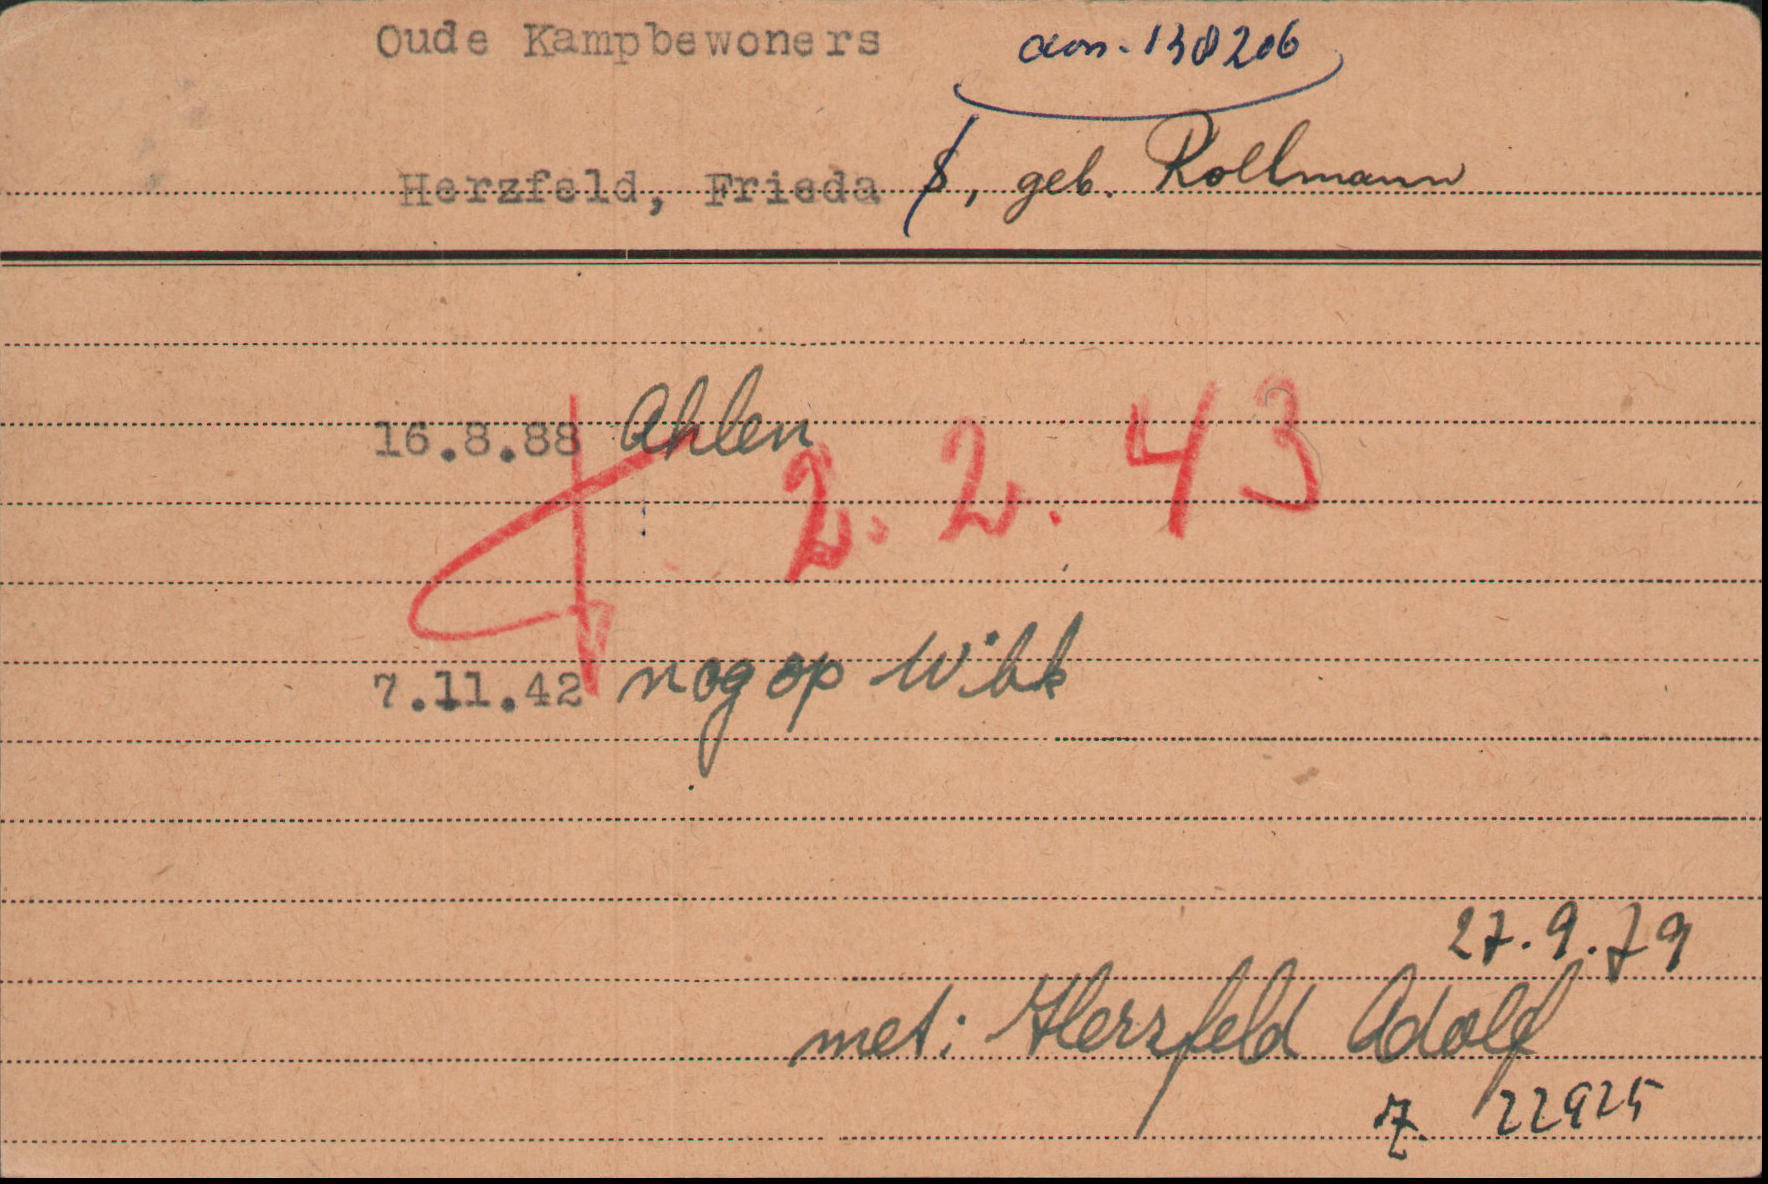 Oude Kampbewoners 138206
Herzfeld, Frieda S, geb. Rollmann
16.8.88 Ahlen
2.2.43
7.11.42 nog op
27.9.79
met: Herzfeld Adolf
22925